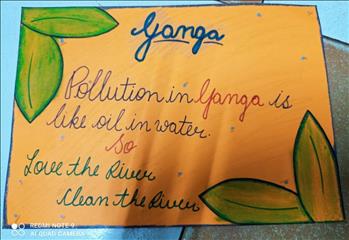 Ganga
Pollution in Ganga is
like oil in water.
So
Love the River
Clean the River
REDMI NOTE 9
AI QUAD CAMERA